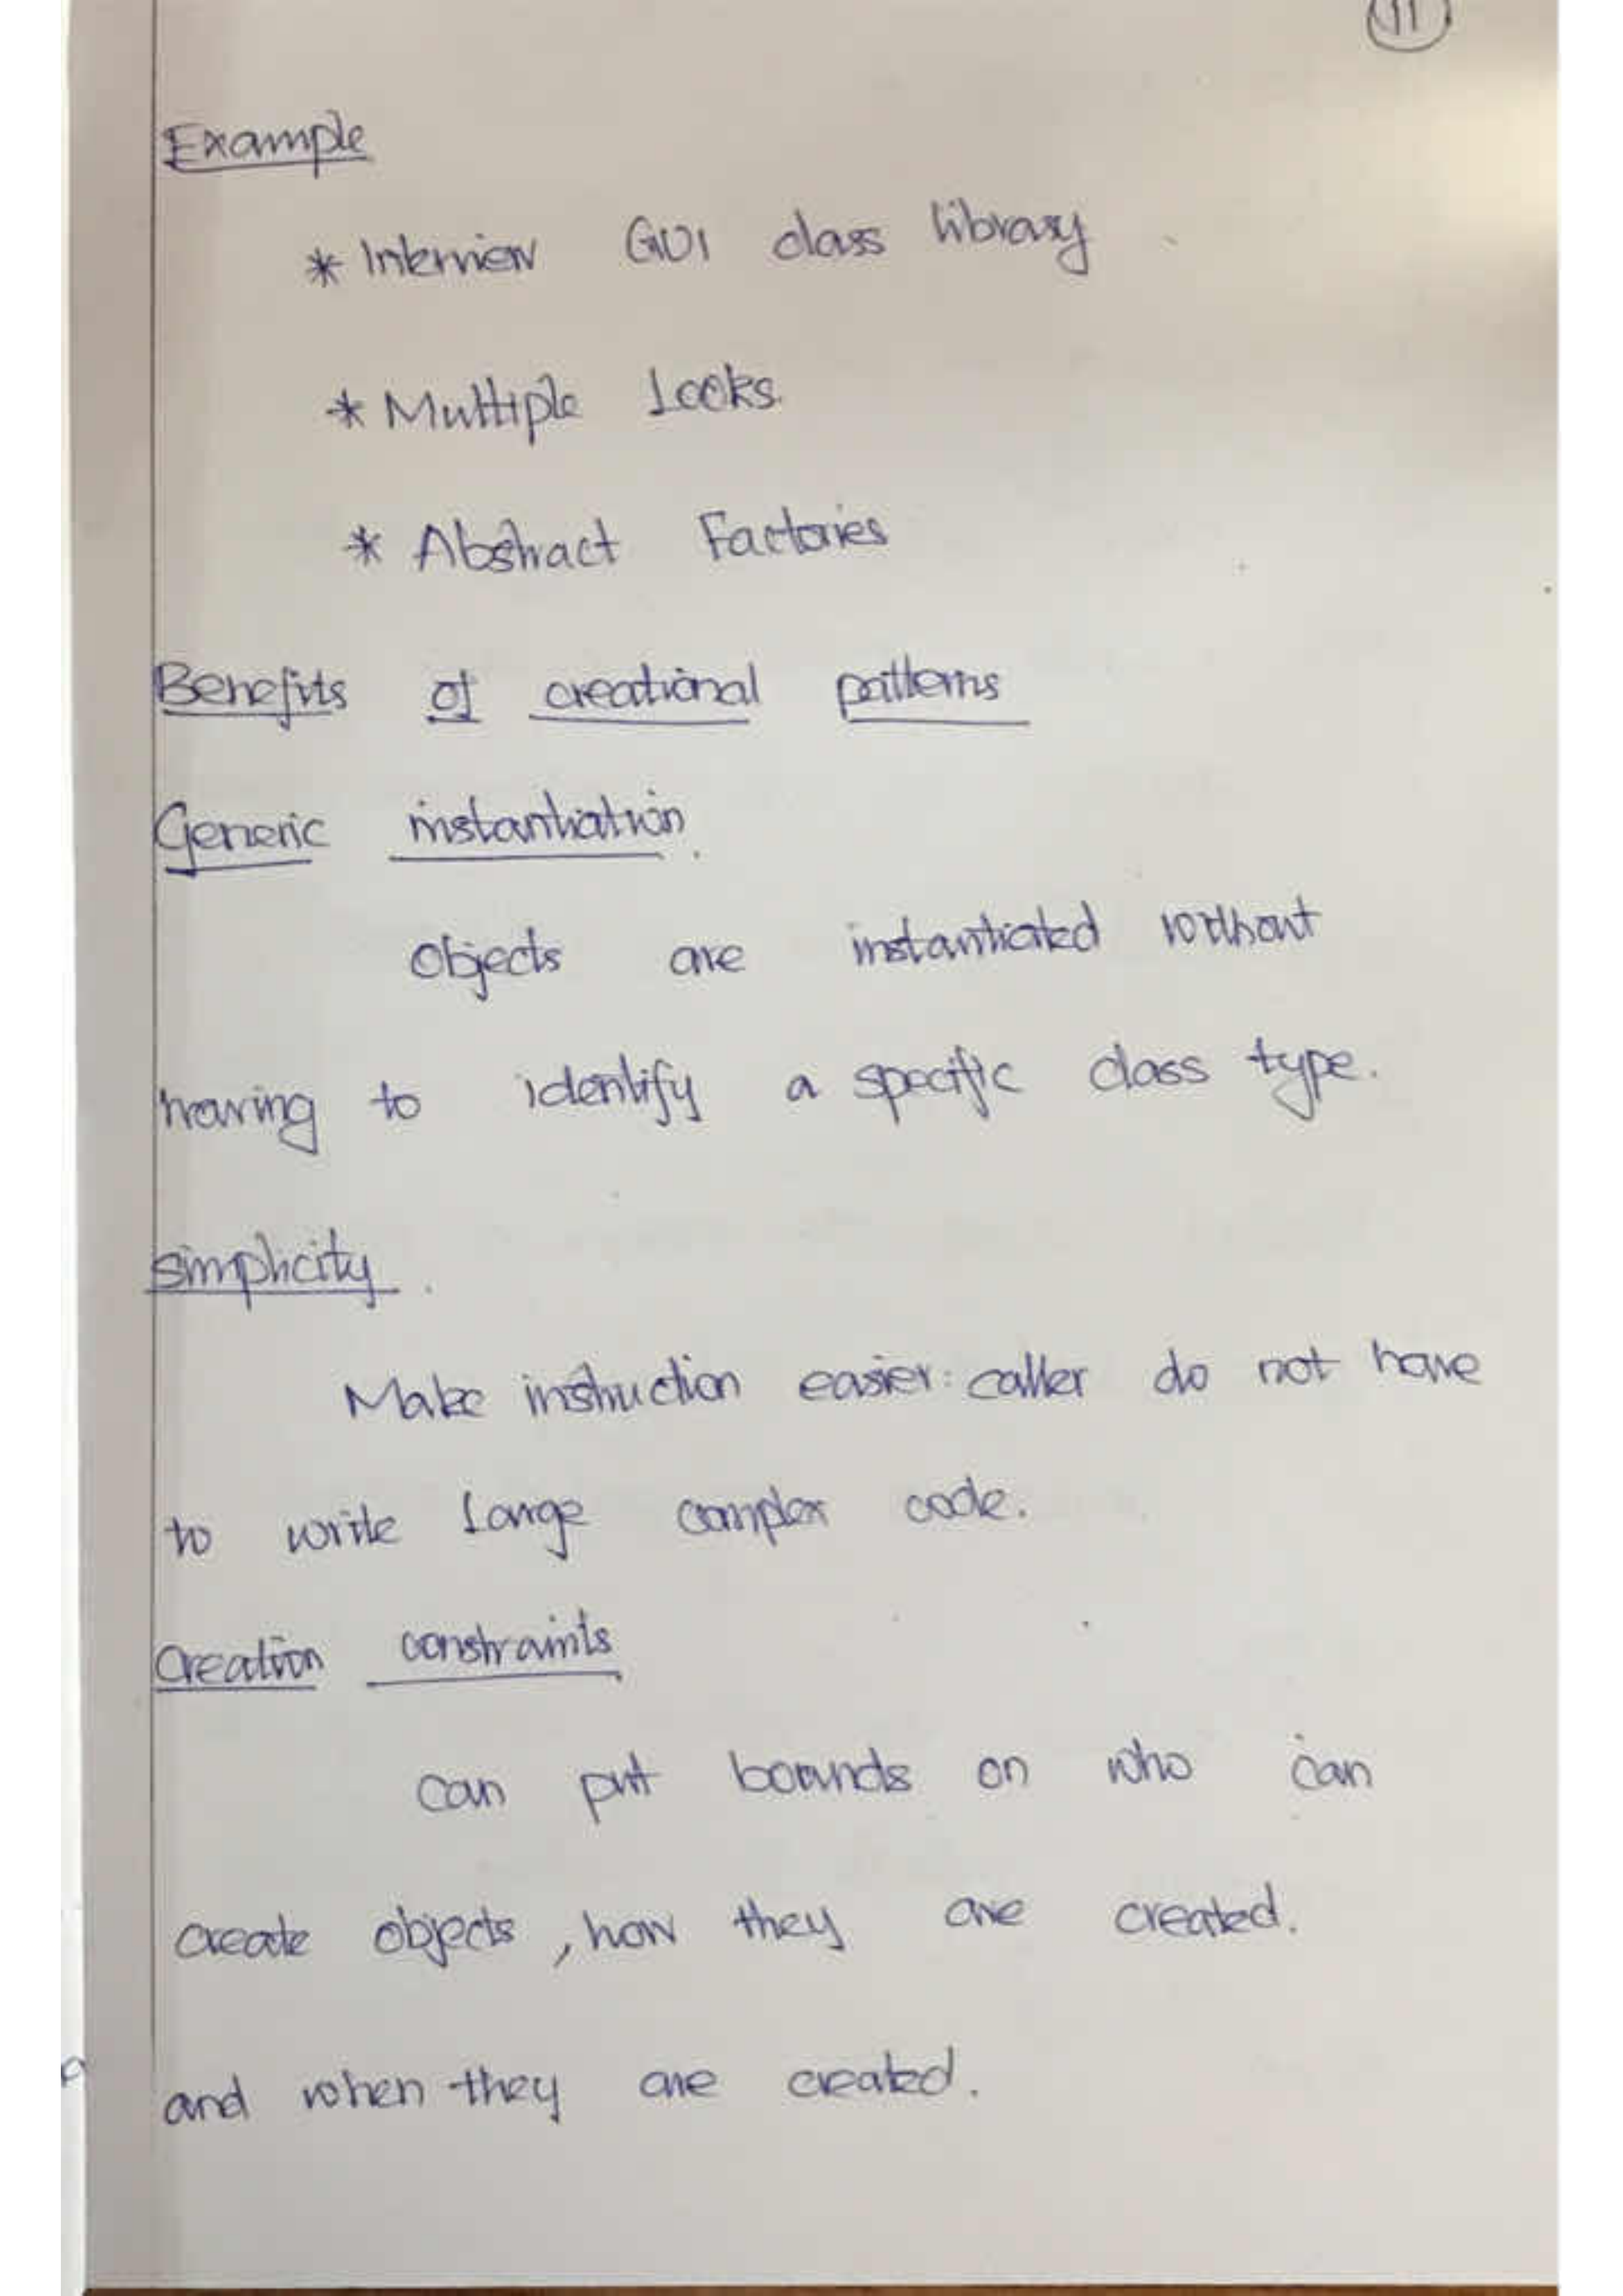 11
Example
* Interview GUI class library
* Multiple Looks
* Abstract Factories
Benefits of creational patterns
Generic instantiation.
Objects are instantiated without
having to identify a specific class type.
simplicity.
Make instruction easier: caller do not have
to write large complex code.
Creation constraints
can put bounds on who can
create objects, how they are created.
and when they are created.